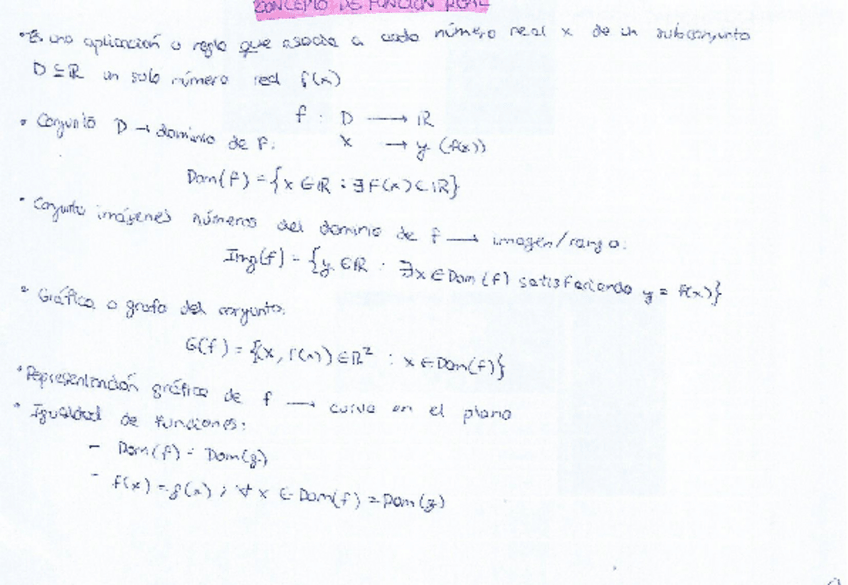 CONCEPTO DE FUNCIÓN REAL
• Es una aplicación o regla que asocia a cada número real x de un subconjunto
D ⊆ ℝ un solo número real f(x)
f : D → ℝ
• Conjunto D → dominio de f:
x → y (f(x))
Dom(f) = {x ∈ ℝ : ∃ f(x) ⊂ ℝ}
• Conjunto imágenes números del dominio de f → imagen/rango:
Img(f) = {y ∈ ℝ : ∃x ∈ Dom(f) satisfaciendo y = f(x)}
• Gráfica o grafo del conjunto:
G(f) = {(x, f(x)) ∈ ℝ² : x ∈ Dom(f)}
• Representación gráfica de f → curva en el plano
• Igualdad de funciones:
- Dom(f) = Dom(g)
- f(x) = g(x) ; ∀ x ∈ Dom(f) = Dom(g)